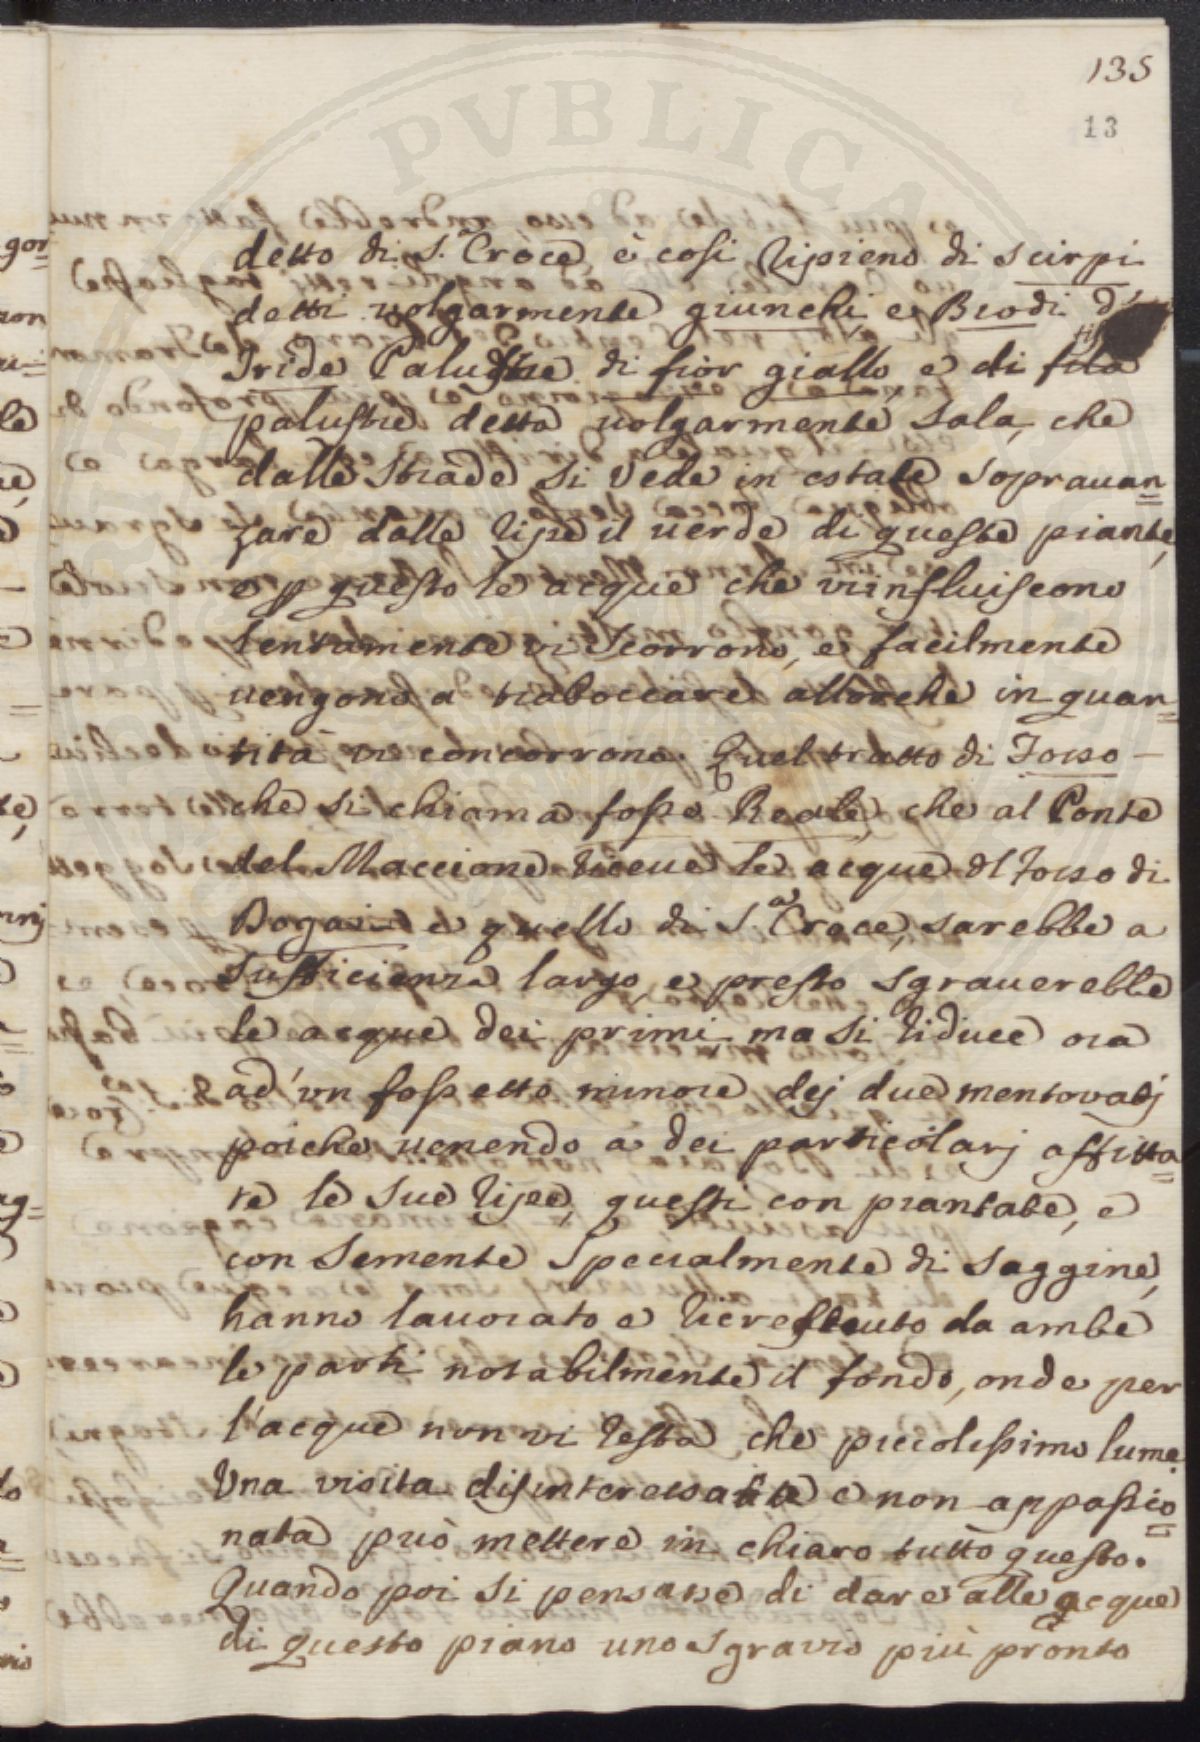 135
13
detto di S.ᵃ Croce è cosi ripieno di scirpi
detti volgarmente giunchi e Biodi d'
Iride Palustre di fior giallo e di tifa
palustre detta volgarmente sala, che
dalle Strade si vede in estate sopravan=
zare dalle ripe il verde di queste piante,
e p questo le acque che vi influiscono
lentamente vi Scorrono, e facilmente
vengono a traboccare allorche in quan=
tità vi concorrono. Quel tratto di Fosso
che si chiama fosso Reale, che al Ponte
del Maccione riceve le acque dl Fosso di
Dogaia e quello di S.ᵃ Croce, sarebbe a
sufficienza largo, e presto sgraverebbe
le acque dei primi, ma si riduce ora
ad un fossetto minore dej due mentovatj
poiche venendo a dei particolarj affitta=
te le sue ripe, questi con piantate, e
con Semente Specialmente di Saggine,
hanno lavorato e ricresciuto da ambe
le parti notabilmente il fondo, onde per
l'acque non vi resta che piccolissimo lume.
Una visita disinteressata e non appassio=
nata può mettere in chiaro tutto questo.
Quando poi si pensasse di dare alle acque
di questo piano uno sgravio più pronto